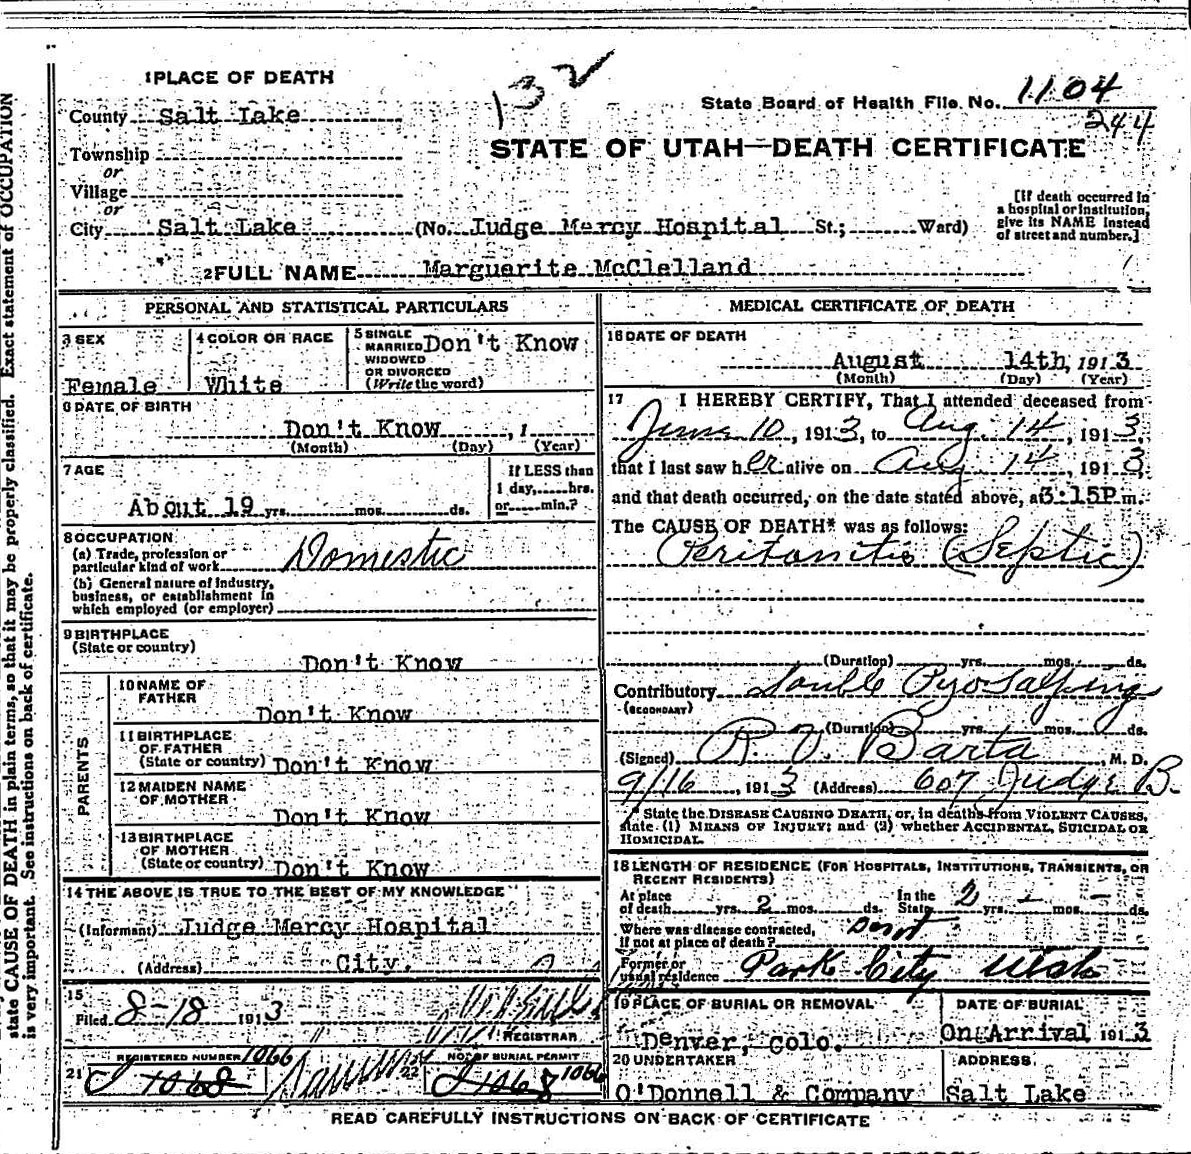 1 PLACE OF DEATH
132
County Salt Lake
State Board of Health File No. 1104
244
Township
STATE OF UTAH—DEATH CERTIFICATE
or
Village
or
City Salt Lake (No. Judge Mercy Hospital St.; Ward)
[If death occurred in
a hospital or institution,
give its NAME instead
of street and number.]
2 FULL NAME Marguerite McClelland
PERSONAL AND STATISTICAL PARTICULARS
3 SEX
Female
4 COLOR OR RACE
White
5 SINGLE
MARRIED
WIDOWED
OR DIVORCED
(Write the word)
Don't Know
6 DATE OF BIRTH
Don't Know , 1
(Month) (Day) (Year)
7 AGE
About 19 yrs. mos. ds.
If LESS than
1 day, hrs.
or min.?
8 OCCUPATION
(a) Trade, profession or
particular kind of work Domestic
(b) General nature of industry,
business, or establishment in
which employed (or employer)
9 BIRTHPLACE
(State or country)
Don't Know
PARENTS
10 NAME OF
FATHER
Don't Know
11 BIRTHPLACE
OF FATHER
(State or country) Don't Know
12 MAIDEN NAME
OF MOTHER
Don't Know
13 BIRTHPLACE
OF MOTHER
(State or country) Don't Know
14 THE ABOVE IS TRUE TO THE BEST OF MY KNOWLEDGE
(Informant) Judge Mercy Hospital
(Address) City.
15
Filed 8-18 1913
REGISTRAR
REGISTERED NUMBER 1066
21 J 1068
NO. OF BURIAL PERMIT
22 J 1068 1066
MEDICAL CERTIFICATE OF DEATH
16 DATE OF DEATH
August 14th, 1913
(Month) (Day) (Year)
17 I HEREBY CERTIFY, That I attended deceased from
June 10, 1913, to Aug. 14, 1913,
that I last saw her alive on Aug 14, 1913,
and that death occurred, on the date stated above, at 3:15P m.
The CAUSE OF DEATH* was as follows:
Peritonitis (Septic)
(Duration) yrs. mos. ds.
Contributory Double Pyosalpinx
(SECONDARY)
(Duration) yrs. mos. ds.
(Signed) R. V. Barta, M. D.
9/16, 1913 (Address) 607 Judge B.
* State the DISEASE CAUSING DEATH, or, in deaths from VIOLENT CAUSES,
state (1) MEANS OF INJURY; and (2) whether ACCIDENTAL, SUICIDAL OR
HOMICIDAL.
18 LENGTH OF RESIDENCE (FOR HOSPITALS, INSTITUTIONS, TRANSIENTS, OR
RECENT RESIDENTS)
At place
of death yrs. 2 mos. ds.
In the
State 2 yrs. - mos. - ds.
Where was disease contracted,
if not at place of death?
Former or
usual residence Park City Utah
19 PLACE OF BURIAL OR REMOVAL
Denver, Colo.
DATE OF BURIAL
On Arrival 1913
20 UNDERTAKER
O'Donnell & Company
ADDRESS
Salt Lake
READ CAREFULLY INSTRUCTIONS ON BACK OF CERTIFICATE
state CAUSE OF DEATH in plain terms, so that it may be properly classified. Exact statement of OCCUPATION
is very important. See instructions on back of certificate.